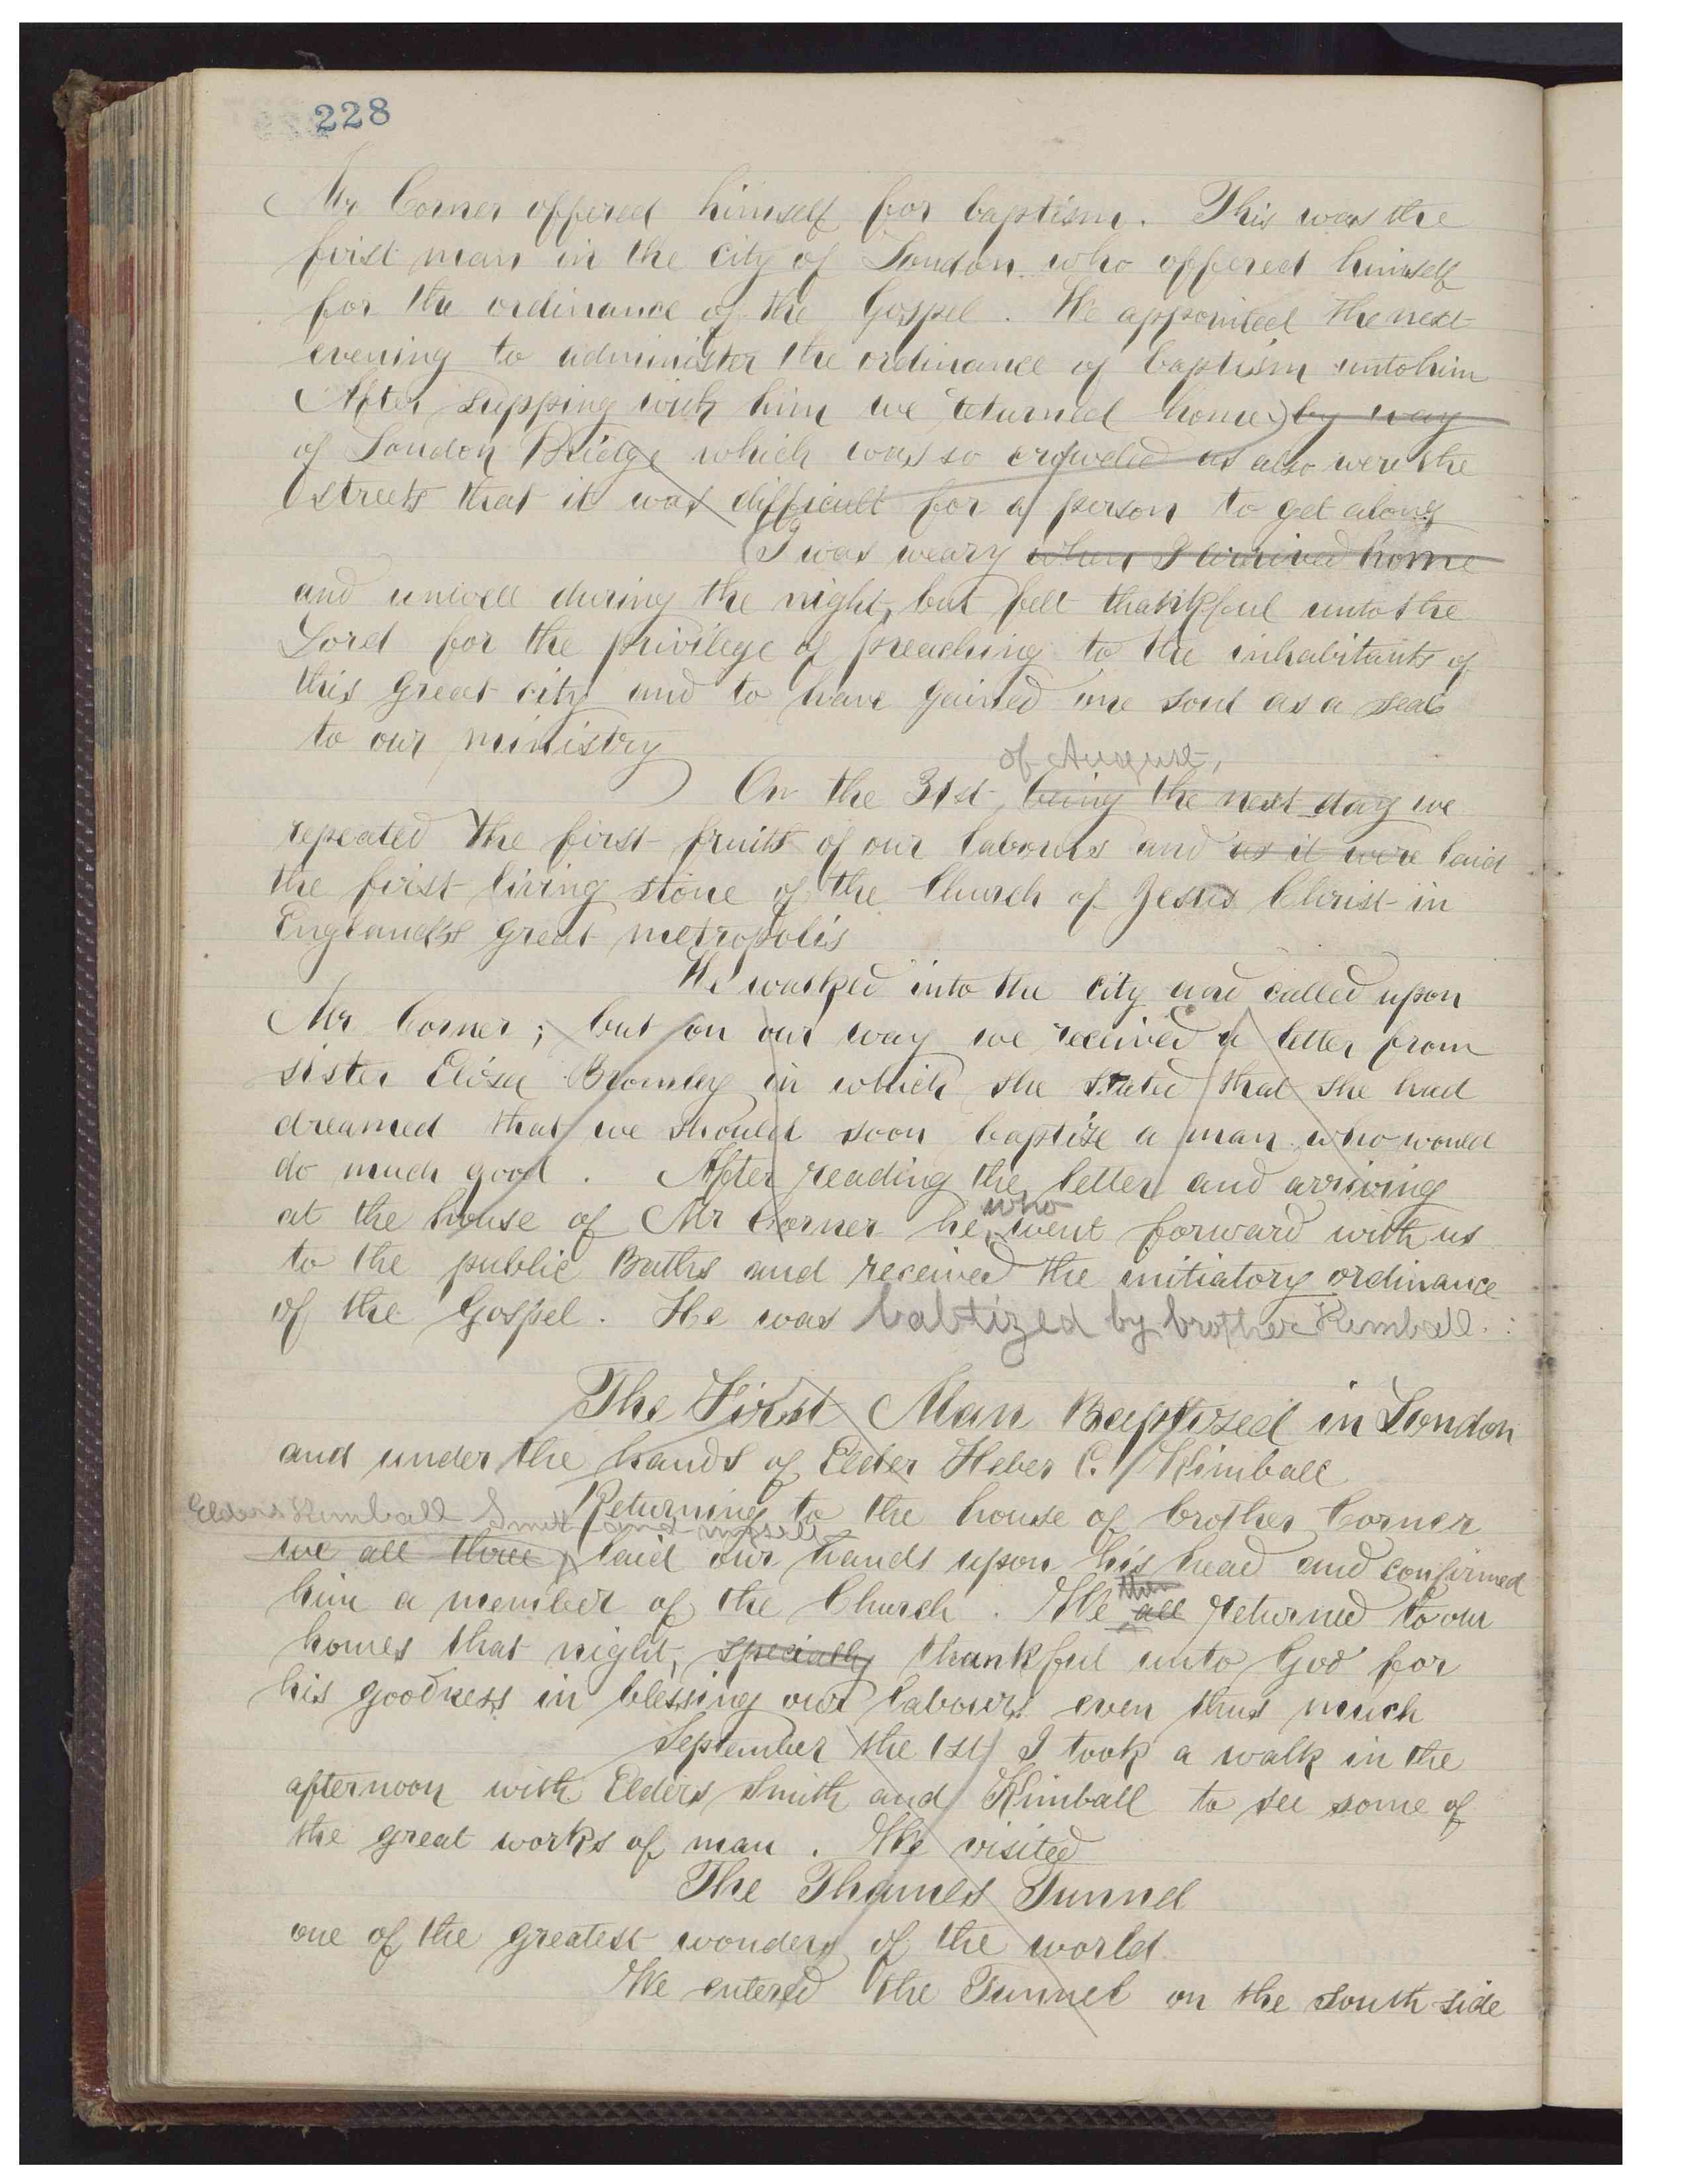 228
Mr Corner offered himself for baptism. This was the
first man in the city of London who offered himself
for the ordinance of the Gospel. We appointed the next
evening to administer the ordinance of baptism unto him
After supping with him we returned home by way
of London Bridge which was so crowded as also were the
streets that it was difficult for a person to get along
I was weary when I arrived home
and unwell during the night, but felt thankful unto the
Lord for the privilege of preaching to the inhabitants of
this great city and to have gained one soul as a seal
to our ministry
of August,
On the 31st, being the next day we
repeated the first fruits of our labours and as it were laid
the first living stone of the Church of Jesus Christ in
England's great metropolis
We walked into the city and called upon
Mr Corner; but on our way we received a letter from
sister Eliza Bromley in which she stated that she had
dreamed that we should soon baptize a man who would
do much good. After reading the letter and arriving
who
at the house of Mr Corner he went forward with us
to the public Baths and received the initiatory ordinance
of the Gospel. He was babtized by brother Kimball.
The First Man Baptized in London
and under the hands of Elder Heber C. Kimball
Returning to the house of brother Corner
Elders Kimball Smith and myself
we all three laid our hands upon his head and confirmed
then
him a member of the Church. We all returned to our
homes that night, specially thankful unto God for
his goodness in blessing our labours even thus much
September the 1st I took a walk in the
afternoon with Elders Smith and Kimball to see some of
the great works of man. We visited
The Thames Tunnel
one of the greatest wonders of the world.
We entered the Tunnel on the south side